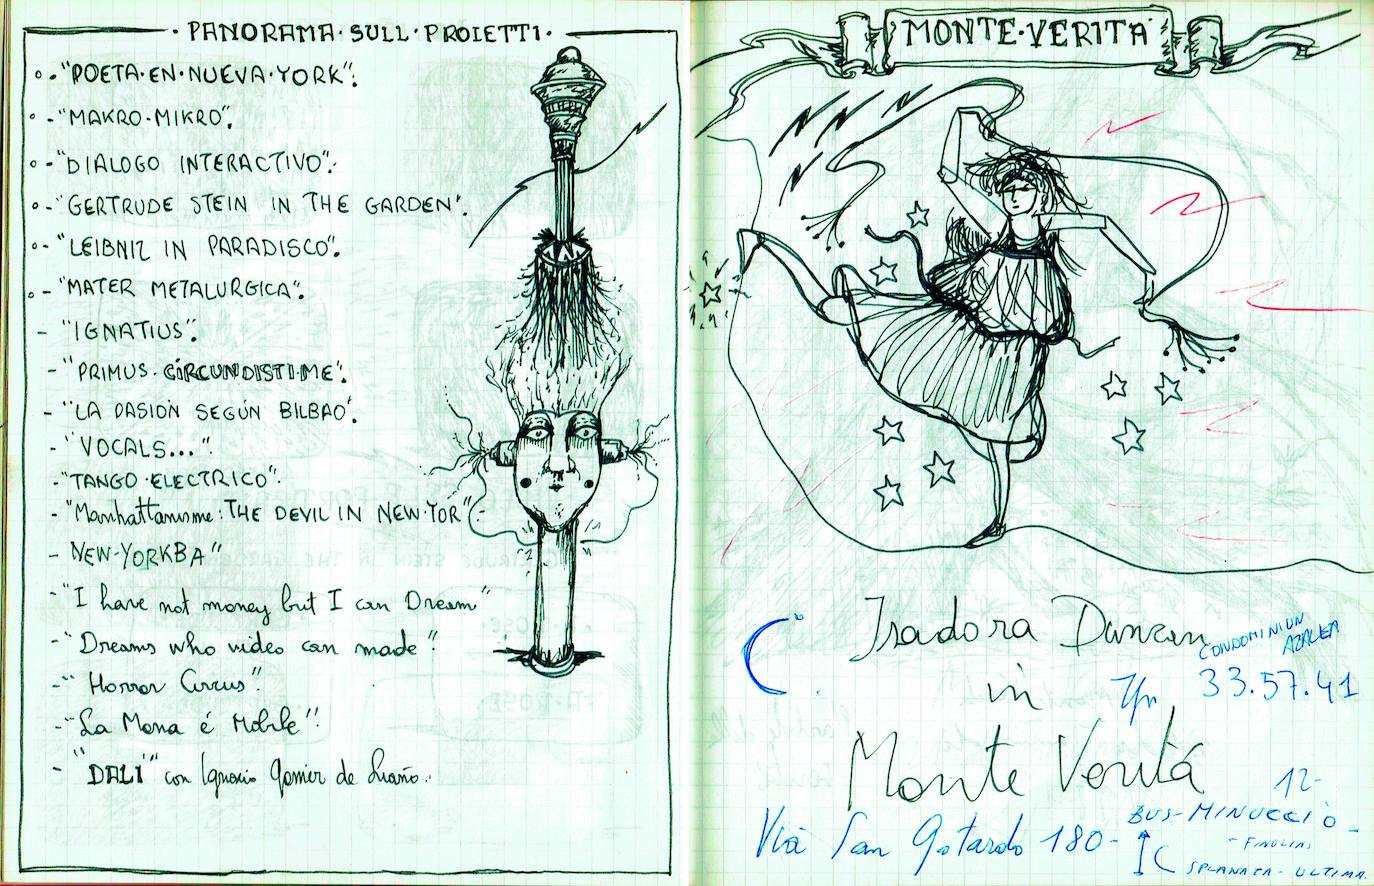 ·PANORAMA·SULL·PROIETTI·
o.-"POETA·EN·NUEVA·YORK".
o-"MAKRO·MIKRO".
o-"DIALOGO INTERACTIVO".
o.-"GERTRUDE STEIN IN THE GARDEN".
o.-"LEIBNIZ IN PARADISCO".
o-"MATER METALURGICA".
-"IGNATIUS".
-"PRIMUS·CIRCUNDISTI·ME".
-"LA PASIÓN SEGÚN BILBAO".
-"VOCALS...".
-"TANGO·ELECTRICO".
-"Manhattanisme: THE DEVIL IN NEW·YOR".-
-NEW·YORKBA"
-"I have not money but I can Dream"
-"Dreams who video can made".
-"Horror Circus".
-"La Mona é Mobile".
-"DALI" con Ignacio Gomez de Liaño.
MONTE·VERITÀ
Isadora Duncan
in
Monte Veritá
CONDOMINIUN
AZALEA
33.57.41
Via San Gotardo 180-
12-
BUS-MINUCCIO-
SPLANATA-ULTIMA.